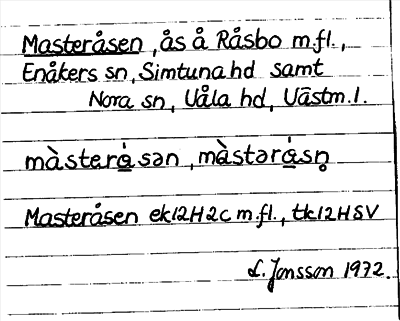 Masteråsen, ås å Råsbo m.fl.,
Enåkers sn, Simtuna hd samt
Nora sn, Uåla hd, Västm.l.
màsterá̱sən, màstərá̱sn̥
Masteråsen ek12H2c m.fl., tk12HSV
L. Jonsson 1972.